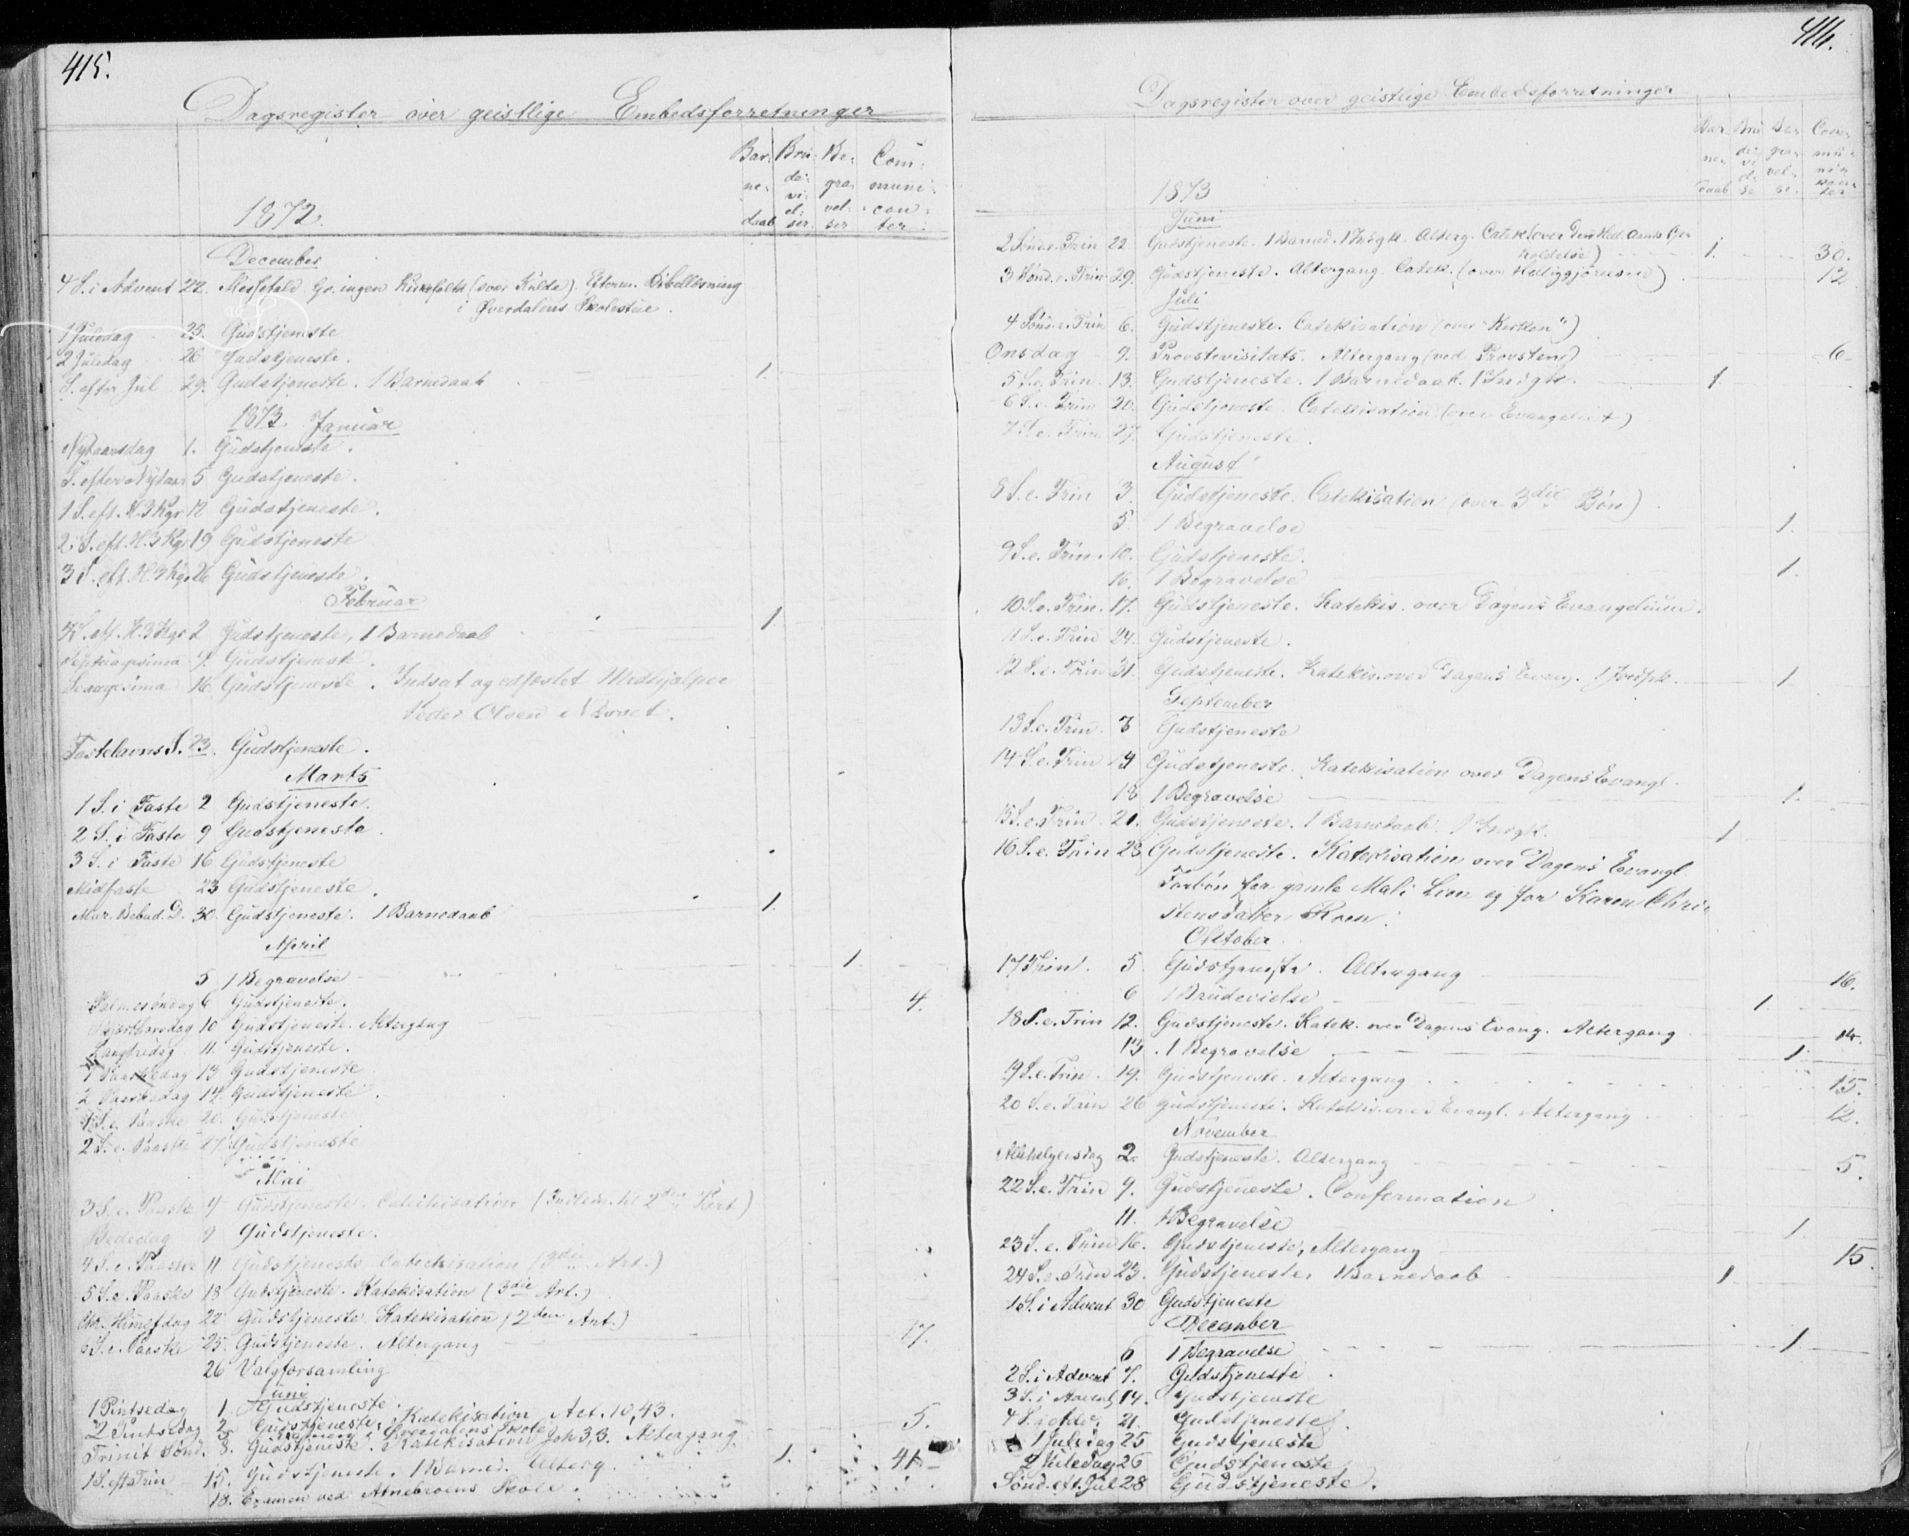 415.
Dagsregister over geistlige Embedsforretninger
Bar- Bru- Be- Com-
ne- de- gra- muni-
vi-
daab el- vel- can-
ser ser ter
1872.
December
4 S. i Advent 22. Messefald Gr. ingen Kirkefolk (svær Kulde). Efterm. Bibellæsning
i Øverdalens Skolestue.
1 Juledag 25. Gudstjeneste
2 Juledag 26 Gudstjeneste.
S. efter Jul 29. Gudstjeneste. 1 Barnedaab 1.
1873 Januar
Nytaarsdag 1. Gudstjeneste.
S. efter Nytaar 5 Gudstjeneste.
1 S. eft. H. 3 Kgr 12 Gudstjeneste.
2 S. eft. H. 3 Kgr 19 Gudstjeneste
3 S. eft. H. 3 Kgr 26 Gudstjeneste.
Februar
4 S. eft. H. 3 Kgr 2 Gudstjeneste, 1 Barnedaab 1.
Septuagesima 9. Gudstjeneste.
Sexagesima 16 Gudstjeneste. Indsat og edfæstet Medhjælper
Peder Olsen
Fastelavns S. 23. Gudstjeneste.
Marts
1 S. i Faste 2 Gudstjeneste.
2 S. i Faste 9 Gudstjeneste.
3 S. i Faste 16 Gudstjeneste
Midfaste 23 Gudstjeneste.
Mar. Bebud. D. 30. Gudstjeneste. 1 Barnedaab 1.
April
5 1 Begravelse 1.
Palmesøndag 6 Gudstjeneste.
Skjærthorsdag 10 Gudstjeneste. Altergang 4.
Langfredag 11. Gudstjeneste.
1 Paaskedag 13 Gudstjeneste
2 Paaskedag 14 Gudstjeneste.
1 S. e. Paaske 20. Gudstjeneste
2 S. e. Paaske 27 Gudstjeneste
Mai
3 S. e. Paaske 4 Gudstjeneste. Catechisation (Indledn. til 2den Part)
Bededag 9 Gudstjeneste.
4 S. e. Paaske 11 Gudstjeneste Catechisation (3die Art.)
5 S. e. Paaske 18 Gudstjeneste. Katekisation (3die Art.)
Chr. Himelfdag 22 Gudstjeneste. Katekisation (2den Art.)
6 S. e. Paaske 25. Gudstjeneste. Altergang 17.
26 Valgforsamling
Juni
1 Pintsedag 1. Gudstjeneste.
2 Pintsedag 2. Gudstjeneste, Katekisation Act. 10,43.
Examen i Øverdalens Skole
Trinit. Sønd. 8. Gudstjeneste. Katekisation Joh 3,3. Altergang 5.
1 S. eft Trin 15. Gudstjeneste. 1 Barned. Alterg. 1. 41.
18. Examen ved Atnebroens Skole.
416.
Dagsregister over geistlige Embedsforretninger
Bar- Bru- Be- Com-
ne- de- gra- mu-
vi- ni-
daab el- vel- kan-
se se. ter
1873
Juni
2 Sønd. e. Trin 22. Gudstjeneste. 1 Barned. 1 Indgk. Alterg. Catek. (over Den Hell. Aands Gjen-
holdelse) 1. 30.
3 Sønd. e. Trin 29. Gudstjeneste. Altergang. Catek. (over Helliggjørelsen) 12
Juli
4 Sønd. e. Trin 6. Gudstjeneste. Catekisation (over "Kirken")
Onsdag 9. Provstevisitats. Altergang (ved Provsten) 6
5 S. e. Trin. 13. Gudstjeneste. 1 Barnedaab. 1 Indgk. 1.
6 S. e. Trin 20. Gudstjeneste. Catekisation (over Evangeliet)
7 S. e. Trin. 27. Gudstjeneste.
August
8 S. e. Trin 3. Gudstjeneste. Catekisation (over 3die Bøn)
5. 1 Begravelse 1.
9 S. e. Trin. 10. Gudstjeneste.
16. 1 Begravelse 1.
10 S. e. Trin. 17. Gudstjeneste. Katekis. over Dagens Evangelium.
11 S. e. Trin 24. Gudstjeneste.
12 S. e. Trin 31. Gudstjeneste. Katekis. over Dagens Evang. 1 Jordpk. 1.
September
13 S. e. Trin. 7 Gudstjeneste
14 S. e. Trin 14 Gudstjeneste. Katekisation over Dagens Evangl.
18 1 Begravelse 1.
15 S. e. Trin. 21. Gudstjeneste. 1 Barnedaab. 1 Indgk. 1
16 S. e. Trin 28 Gudstjeneste. Katekisation over Dagens Evangl
Forbøn for gamle Mali Lien og for Karen Chri-
stensdatter Roen.
Oktober
17 Trin. 5. Gudstjeneste. Altergang 16.
6 1 Brudevielse 1.
18 S. e. Trin 12. Gudstjeneste. Katek. over Dagens Evang. Altergang 14.
13. 1 Begravelse 1.
19 S. e. Trin. 19. Gudstjeneste. Altergang 15.
20 S. e. Trin 26 Gudstjeneste. Katekis. over Evangl. Altergang 12.
November
Allehelgensdag 2. Gudstjeneste. Altergang 5.
22 S. e. Trin 9. Gudstjeneste. Confermation
11. 1 Begravelse 1.
23 S. e. Trin 16. Gudstjeneste, Altergang 15
24 S. e. Trin 23. Gudstjeneste, 1 Barnedaab 1
1 S. i Advent 30 Gudstjeneste
December
6 1 Begravelse 1
2 S. i Advent 7. Gudstjeneste
3 S. i Advent 14. Gudstjeneste
4 S. i 21. Gudstjeneste
1 Juledag 25 Gudstjeneste
2 Juledag 26 Gudstjeneste
Sønd. eft. Jul 28 Gudstjeneste.